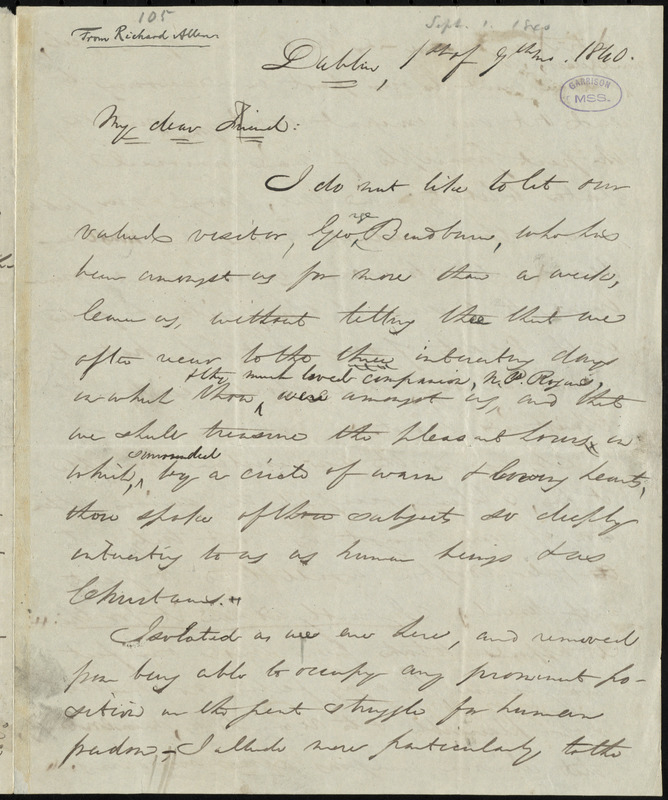 105
From Richard Allen
Sept. 1. 1840
Dublin, 1st of 9th mo. 1840.
GARRISON
MSS.
My dear Friend:
I do not like to let our
valued visitor, Geo.rge Bradburn, who has
been amongst us for more than a week,
leave us, without telling thee that we
often recur to the three interesting days
& thy much loved companion, N. P. Rogers,
in which thou were amongst us, and that
we shall treasure the pleasant hours in
surrounded
which, by a circle of warm & loving hearts,
thou spoke of those subjects so deeply
interesting to us as human beings & as
Christians.
Isolated as we are here, and removed
from being able to occupy any prominent po-
sition in the great struggle for human
freedom, I allude more particularly to the